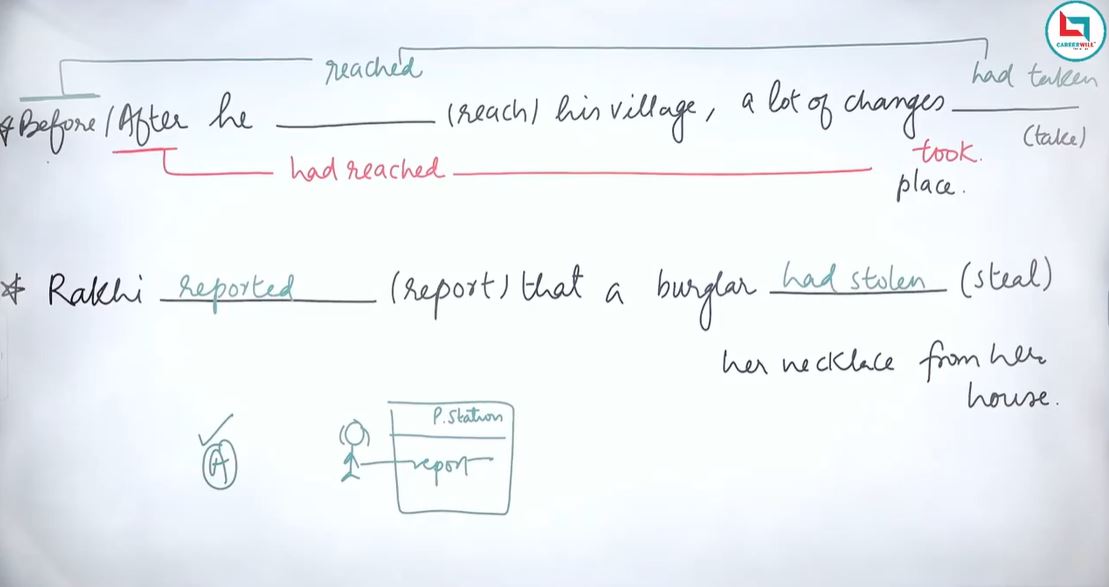 CAREERWILL
reached
had taken
* Before / After he ________ (reach) his village, a lot of changes ________
(take)
had reached
took.
place.
* Rakhi reported (report) that a burglar had stolen (steal)
her necklace from her
house.
P. Station
A
report